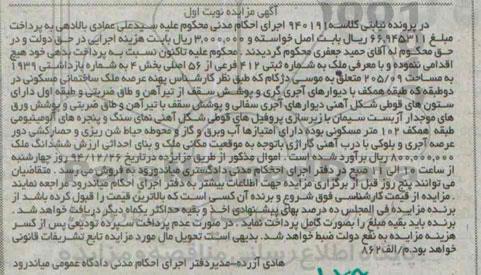 آگهی مزایده نوبت اول
در پرونده نیابتی کلاسه ۹۴۰۱۹۱ اجرای احکام مدنی محکوم علیه سیدعلی عمادی بالادهی به پرداخت
مبلغ ۶۶,۹۴۵۳۱۱ ریال بابت اصل خواسته و ۳,۰۰۰,۰۰۰ ریال بابت هزینه اجرایی در حق دولت و در
حق محکوم له آقای حمید جعفری محکوم گردیدند. محکوم علیه تاکنون نسبت به پرداخت بدهی خود هیچ
اقدامی ننموده و با معرفی ملک به شماره ثبتی ۴۱۲ فرعی از ۵۶ اصلی بخش ۴ به شماره بازداشتی ۱۹۳۹
به مساحت ۲۰۵/۰۹ متعلق به موسی دژکام که طبق نظر کارشناس پهنه عرصه ملک ساختمانی مسکونی در
دوطبقه که طبقه همکف با دیوارهای آجری گری و پوشش سقف از تیرآهن و طاق ضربتی و طبقه اول دارای
ستون های قوطی شکل آهنی دیوارهای آجری سفالی و پوشش سقف با تیرآهن و طاق ضربتی و پوشش ورق
های موجدار آزبست سیمان با زیرسازی پروفیل های قوطی شکل آهنی نمای سنگ و پنجره های آلومینیومی
طبقه همکف ۱۰۲ متر مسکونی بوده دارای امتیازها آب وبرق و گاز و محوطه حیاط شن ریزی و حصارکشی دور
عرصه آجری و بلوکی با درب آهنی گاراژی باتوجه به موقعیت مکانی ملک و بنای احداثی ارزش ششدانگ ملک
۸۰۰,۰۰۰,۰۰۰ ریال برآورد شده است. اموال مذکور از طریق مزایده درتاریخ ۹۴/۱۲/۲۶ روز چهارشنبه
از ساعت ۱۰ الی ۱۱ صبح در دفتر اجرای احکام مدنی دادگستری میاندورود به فروش می رسد. متقاضیان
می توانند پنج روز قبل از برگزاری مزایده جهت اطلاعات بیشتر به دفتر اجرای احکام میاندرود مراجعه نمایند
. مزایده از قیمت کارشناسی فوق شروع و برنده آن کسی است که بالاترین قیمت را قبول کرده باشد. از
برنده مزایده فی المجلس ده درصد بهای پیشنهادی اخذ و بقیه حداکثر یکماه دیگر دریافت خواهد شد.
برنده باید بقیه مبلغ را بصورت کامل پرداخت نماید. در صورت عدم پرداخت سپرده تودیعی پس از کسر
هزینه مزایده به نفع دولت ضبط خواهد شد. بدیهی است تحویل مال مورد مزایده تابع تشریفات قانونی
خواهد بود.م/الف۸۶۲
هادی آزرده-مدیردفتر اجرای احکام مدنی دادگاه عمومی میاندرود